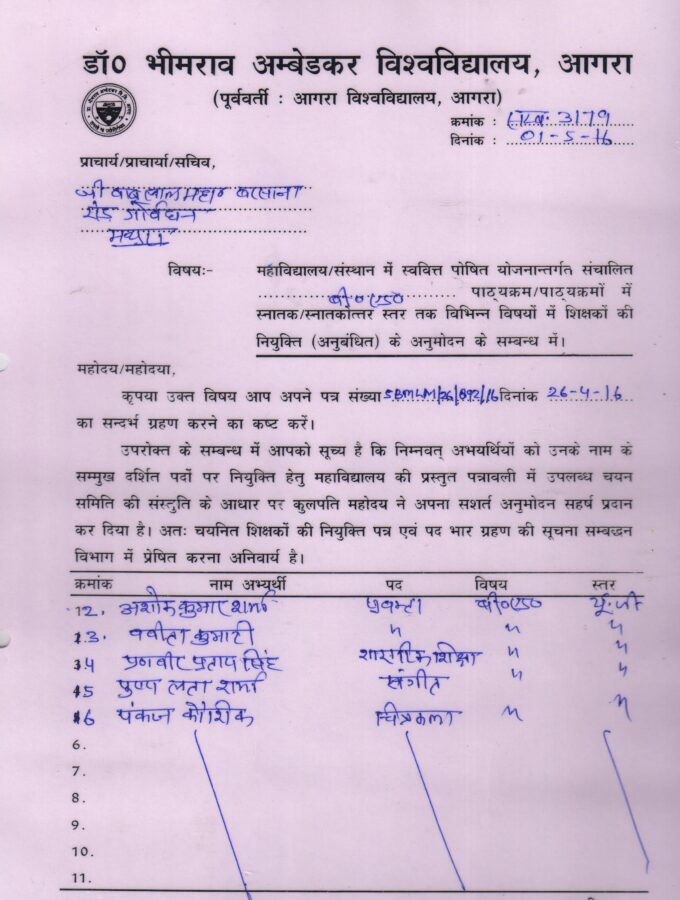 डॉ० भीमराव अम्बेडकर विश्वविद्यालय, आगरा
(पूर्ववर्ती : आगरा विश्वविद्यालय, आगरा)
क्रमांक : 3179
दिनांक : 01-5-16
प्राचार्य/प्राचार्या/सचिव,
श्री बाबूलाल महा० बरसाना
रोड गोवर्धन
मथुरा
विषयः- महाविद्यालय/संस्थान में स्ववित्त पोषित योजनान्तर्गत संचालित
बी०एड० पाठ्यक्रम/पाठ्यक्रमों में
स्नातक/स्नातकोत्तर स्तर तक विभिन्न विषयों में शिक्षकों की
नियुक्ति (अनुबंधित) के अनुमोदन के सम्बन्ध में।
महोदय/महोदया,
कृपया उक्त विषय आप अपने पत्र संख्या SBMLM/26/892/16 दिनांक 26-4-16
का सन्दर्भ ग्रहण करने का कष्ट करें।
उपरोक्त के सम्बन्ध में आपको सूच्य है कि निम्नवत् अभयर्थियों को उनके नाम के
सम्मुख दर्शित पदों पर नियुक्ति हेतु महाविद्यालय की प्रस्तुत पत्रावली में उपलब्ध चयन
समिति की संस्तुति के आधार पर कुलपति महोदय ने अपना सशर्त अनुमोदन सहर्ष प्रदान
कर दिया है। अतः चयनित शिक्षकों की नियुक्ति पत्र एवं पद भार ग्रहण की सूचना सम्बद्धन
विभाग में प्रेषित करना अनिवार्य है।
क्रमांक नाम अभ्यर्थी पद विषय स्तर
12. अशोक कुमार शर्मा प्रवक्ता बी०एड० यू.जी
13. बबीता कुमारी " " "
14 प्रणवीर प्रताप सिंह शारीरिक शिक्षा " "
15 पुष्प लता शर्मा संगीत " "
16 पंकज कौशिक चित्रकला " "
6.
7.
8.
9.
10.
11.